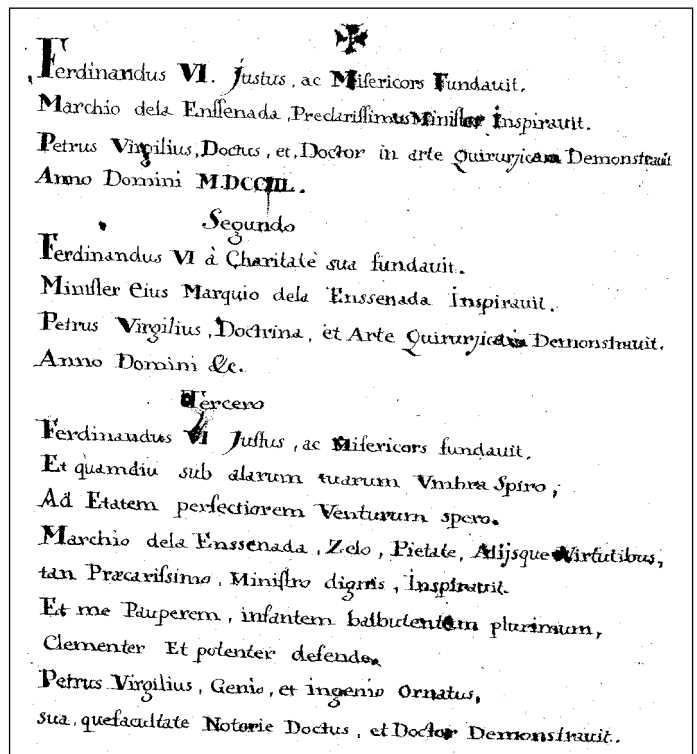 Ferdinandus VI. Justus, ac Misericors Fundavit.
Marchio dela Enssenada, Preclarissimus Minister Inspiravit.
Petrus Virgilius, Doctus, et, Doctor in arte Quirurjicam Demonstravit
Anno Domini M.DCCIIL.
Segundo
Ferdinandus VI à Charitatè sua fundauit.
Minister Eius Marquio dela Enssenada Inspirauit.
Petrus Virgilius, Doctrina, et Arte Quirurjicam Demonstrauit.
Anno Domini &c.
Tercero
Ferdinandus VI Justus, ac Misericors fundauit.
Et quamdiu sub alarum tuarum Vmbra Spiro;
Ad Etatem perfectiorem Venturum spero.
Marchio dela Enssenada, Zelo, Pietate, Alijsque Virtutibus,
tan Præcarissimo, Ministro dignis, Inspirauit.
Et me Pauperem, infantem balbutentem plurimum,
Clementer Et potenter defende.
Petrus Virgilius, Genio, et ingenio Ornatus,
sua, quefacultate Notorie Doctus, et Doctor Demonstrauit.